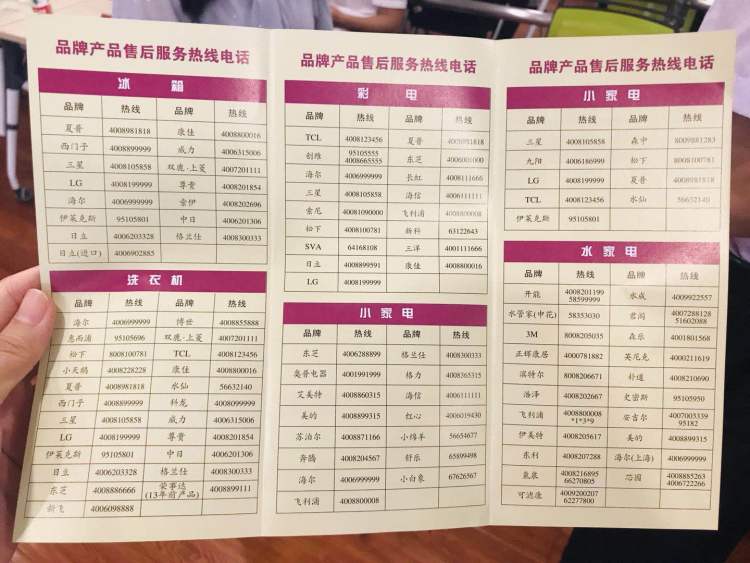 品牌产品售后服务热线电话
冰 箱
品牌 热线 品牌 热线
夏普 4008981818 康佳 4008800016
西门子 4008899999 威力 4006315006
三星 4008105858 双鹿·上菱 4007201111
LG 4008199999 尊贵 4008201854
海尔 4006999999 索伊 4008202696
伊莱克斯 95105801 中日 4006201306
日立 4006203328 格兰仕 4008300333
日立(进口) 4006902885
洗 衣 机
品牌 热线 品牌 热线
海尔 4006999999 博世 4008855888
惠而浦 95105696 双鹿·上菱 4007201111
松下 8008100781 TCL 4008123456
小天鹅 4008228228 康佳 4008800016
夏普 4008981818 水仙 56632140
西门子 4008899999 科龙 4008099999
三星 4008105858 威力 4006315006
LG 4008199999 尊贵 4008201854
伊莱克斯 95105801 中日 4006201306
日立 4006203328 格兰仕 4008300333
东芝 4008886666 荣事达 4008899111
(13年前产品)
新飞 4006098888
品牌产品售后服务热线电话
彩 电
品牌 热线 品牌 热线
TCL 4008123456 夏普 4008981818
创维 95105555 东芝 4006001000
4008665555
海尔 4006999999 长虹 4008111666
三星 4008105858 海信 4006111111
索尼 4008109000 飞利浦 4008800008
松下 4008100781 新科 63122643
SVA 64168108 三洋 4001111666
日立 4008899591 康佳 4008800016
LG 4008199999
小 家 电
品牌 热线 品牌 热线
东芝 4006288899 格兰仕 4008300333
奥普电器 4001991999 格力 4008365315
艾美特 4008860315 海信 4006111111
美的 4008899315 红心 4006019430
苏泊尔 4008871166 小绵羊 56654677
奔腾 4008204567 舒乐 65899498
海尔 4006999999 小白象 67626567
飞利浦 4008800008
品牌产品售后服务热线电话
小 家 电
品牌 热线 品牌 热线
三星 4008105858 森中 8009881283
九阳 4006186999 松下 8008100781
LG 4008199999 夏普 4008981818
TCL 4008123456 水仙 56632140
伊莱克斯 95105801
水 家 电
品牌 热线 品牌 热线
开能 4008201199 水成 4009922557
58599999
水管家(申花) 58353030 君阁 4007288128
51602088
3M 8008205035 森乐 4001801568
正辉康居 4000781882 英尼克 4000211619
滨特尔 8008206671 朴道 4008210690
浩泽 4008202667 史密斯 95105950
飞利浦 4008800008 安吉尔 4007003339
*1*3*9 95182
伊美特 4008205617 美的 4008899315
东利 4008207288 海尔(上海) 4006999999
氧泉 4008216895 芯园 4008885263
66270805 4006722266
可滤康 4009200207
62277800